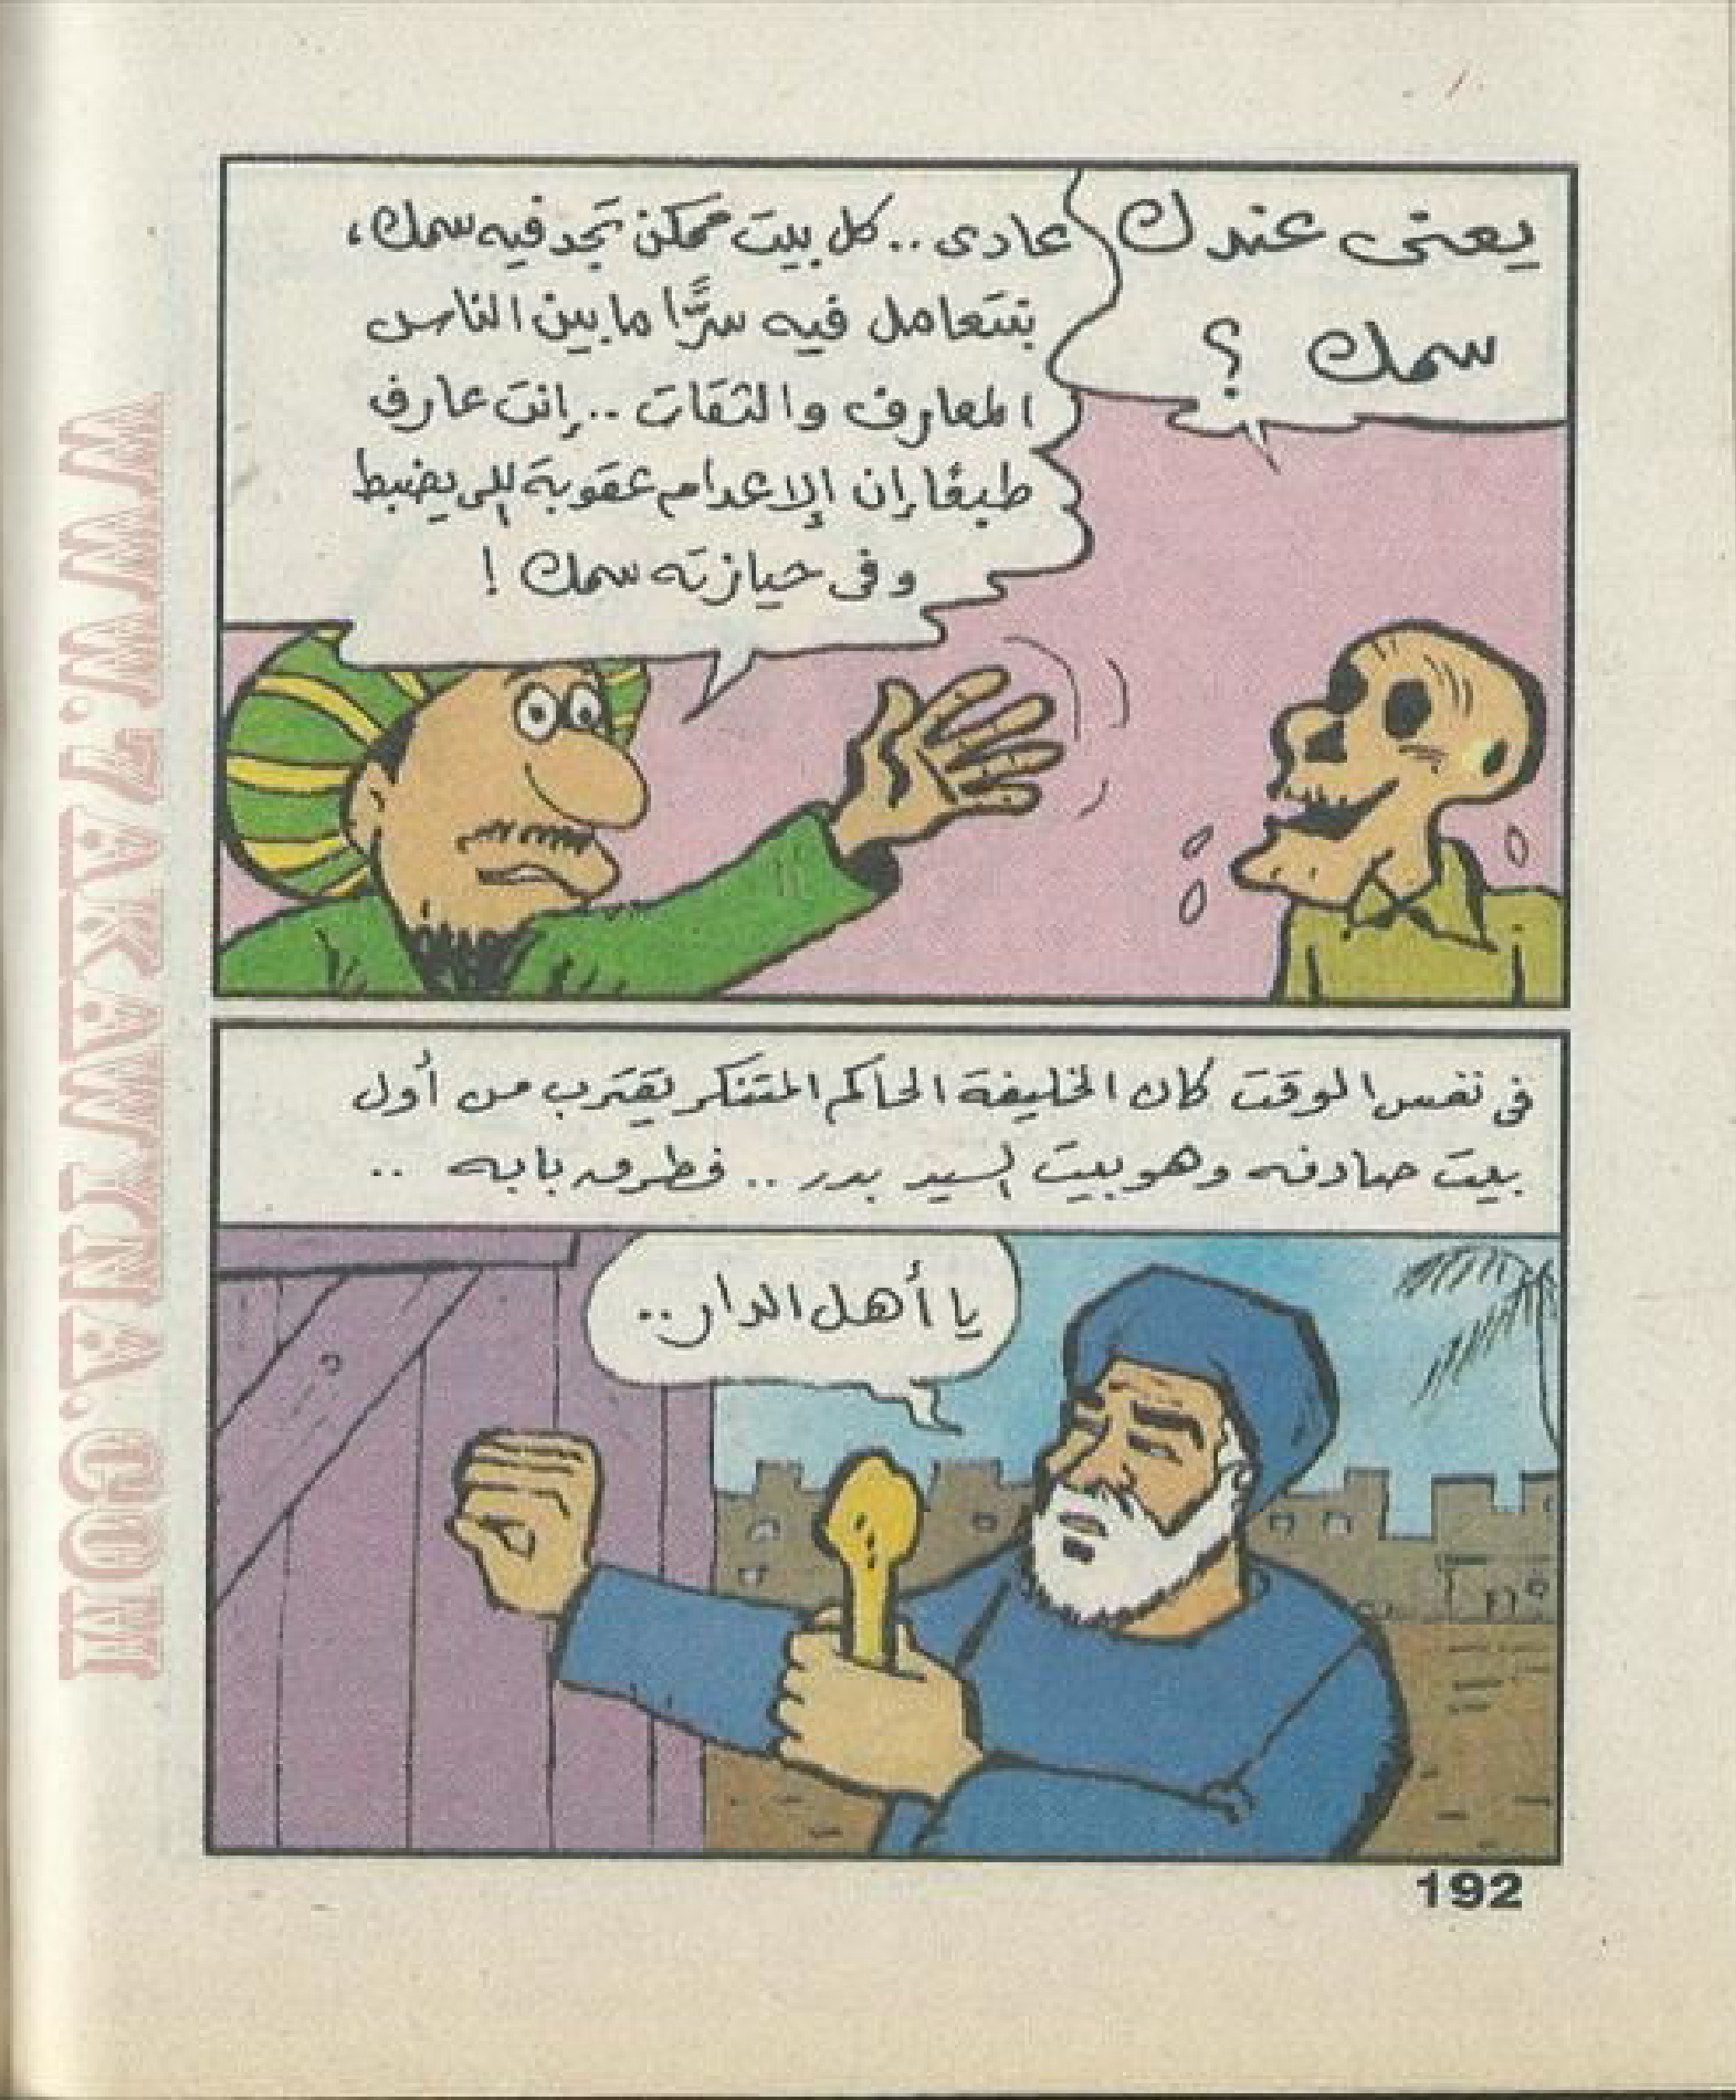 يعنى عندك
سمك ؟
عادى .. كل بيت ممكن تجد فيه سمك،
بنتعامل فيه سرًّا ما بين الناس
المعارف والثقات .. إنت عارف
طبعًا إن الإعدام عقوبة اللى يضبط
وفى حيازته سمك !
فى نفس الوقت كان الخليفة الحاكم المتنكر يقترب من أول
بيت صادفه وهو بيت السيد بدر .. فطرق بابه ..
يا أهل الدار ..
192
WWW.TAKAWTNA.COM